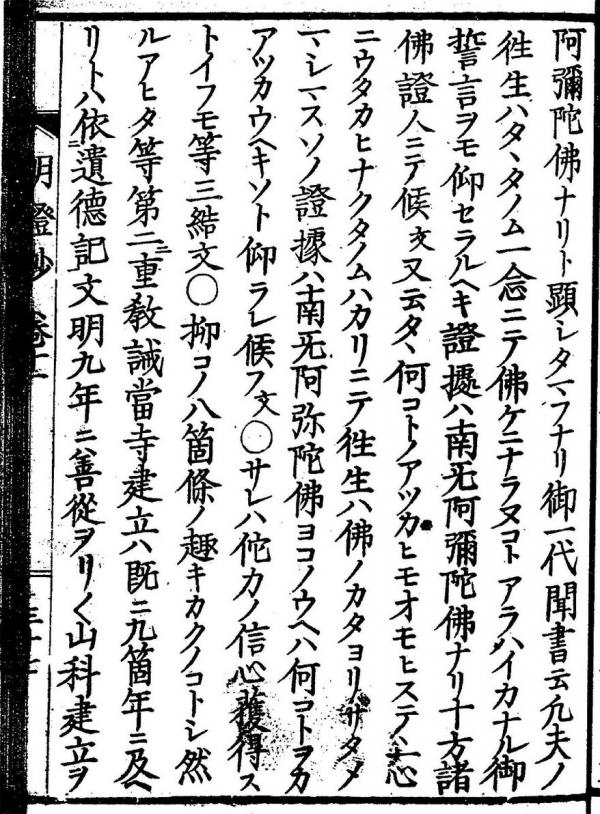 阿彌陀佛ナリト顕シタマフナリ御一代聞書云凡夫ノ
徃生ハタヽタノム一念ニテ佛ケニナラヌコトアラハイカナル御
誓言ヲモ仰セラルヘキ證據ハ南无阿彌陀佛ナリ十方諸
佛證人ニテ候文又云タヽ何コトノアツカヒモオモヒステヽ一心
ニウタカヒナクタノムハカリニテ徃生ハ佛ノカタヨリサタメ
マシマスソノ證據ハ南无阿弥陀佛ヨコノウヘハ何コトヲカ
アツカウヘキソト仰ラレ候フ文〇サレハ佗力ノ信心獲得ス
トイフモ等三結文〇抑コノ八箇條ノ趣キカクノコトシ然
ルアヒタ等第二重教誡當寺建立ハ既ニ九箇年ニ及ヘ
リトハ依遺德記文明九年ニ善從ヲリ〱山科建立ヲ
明證抄 卷二